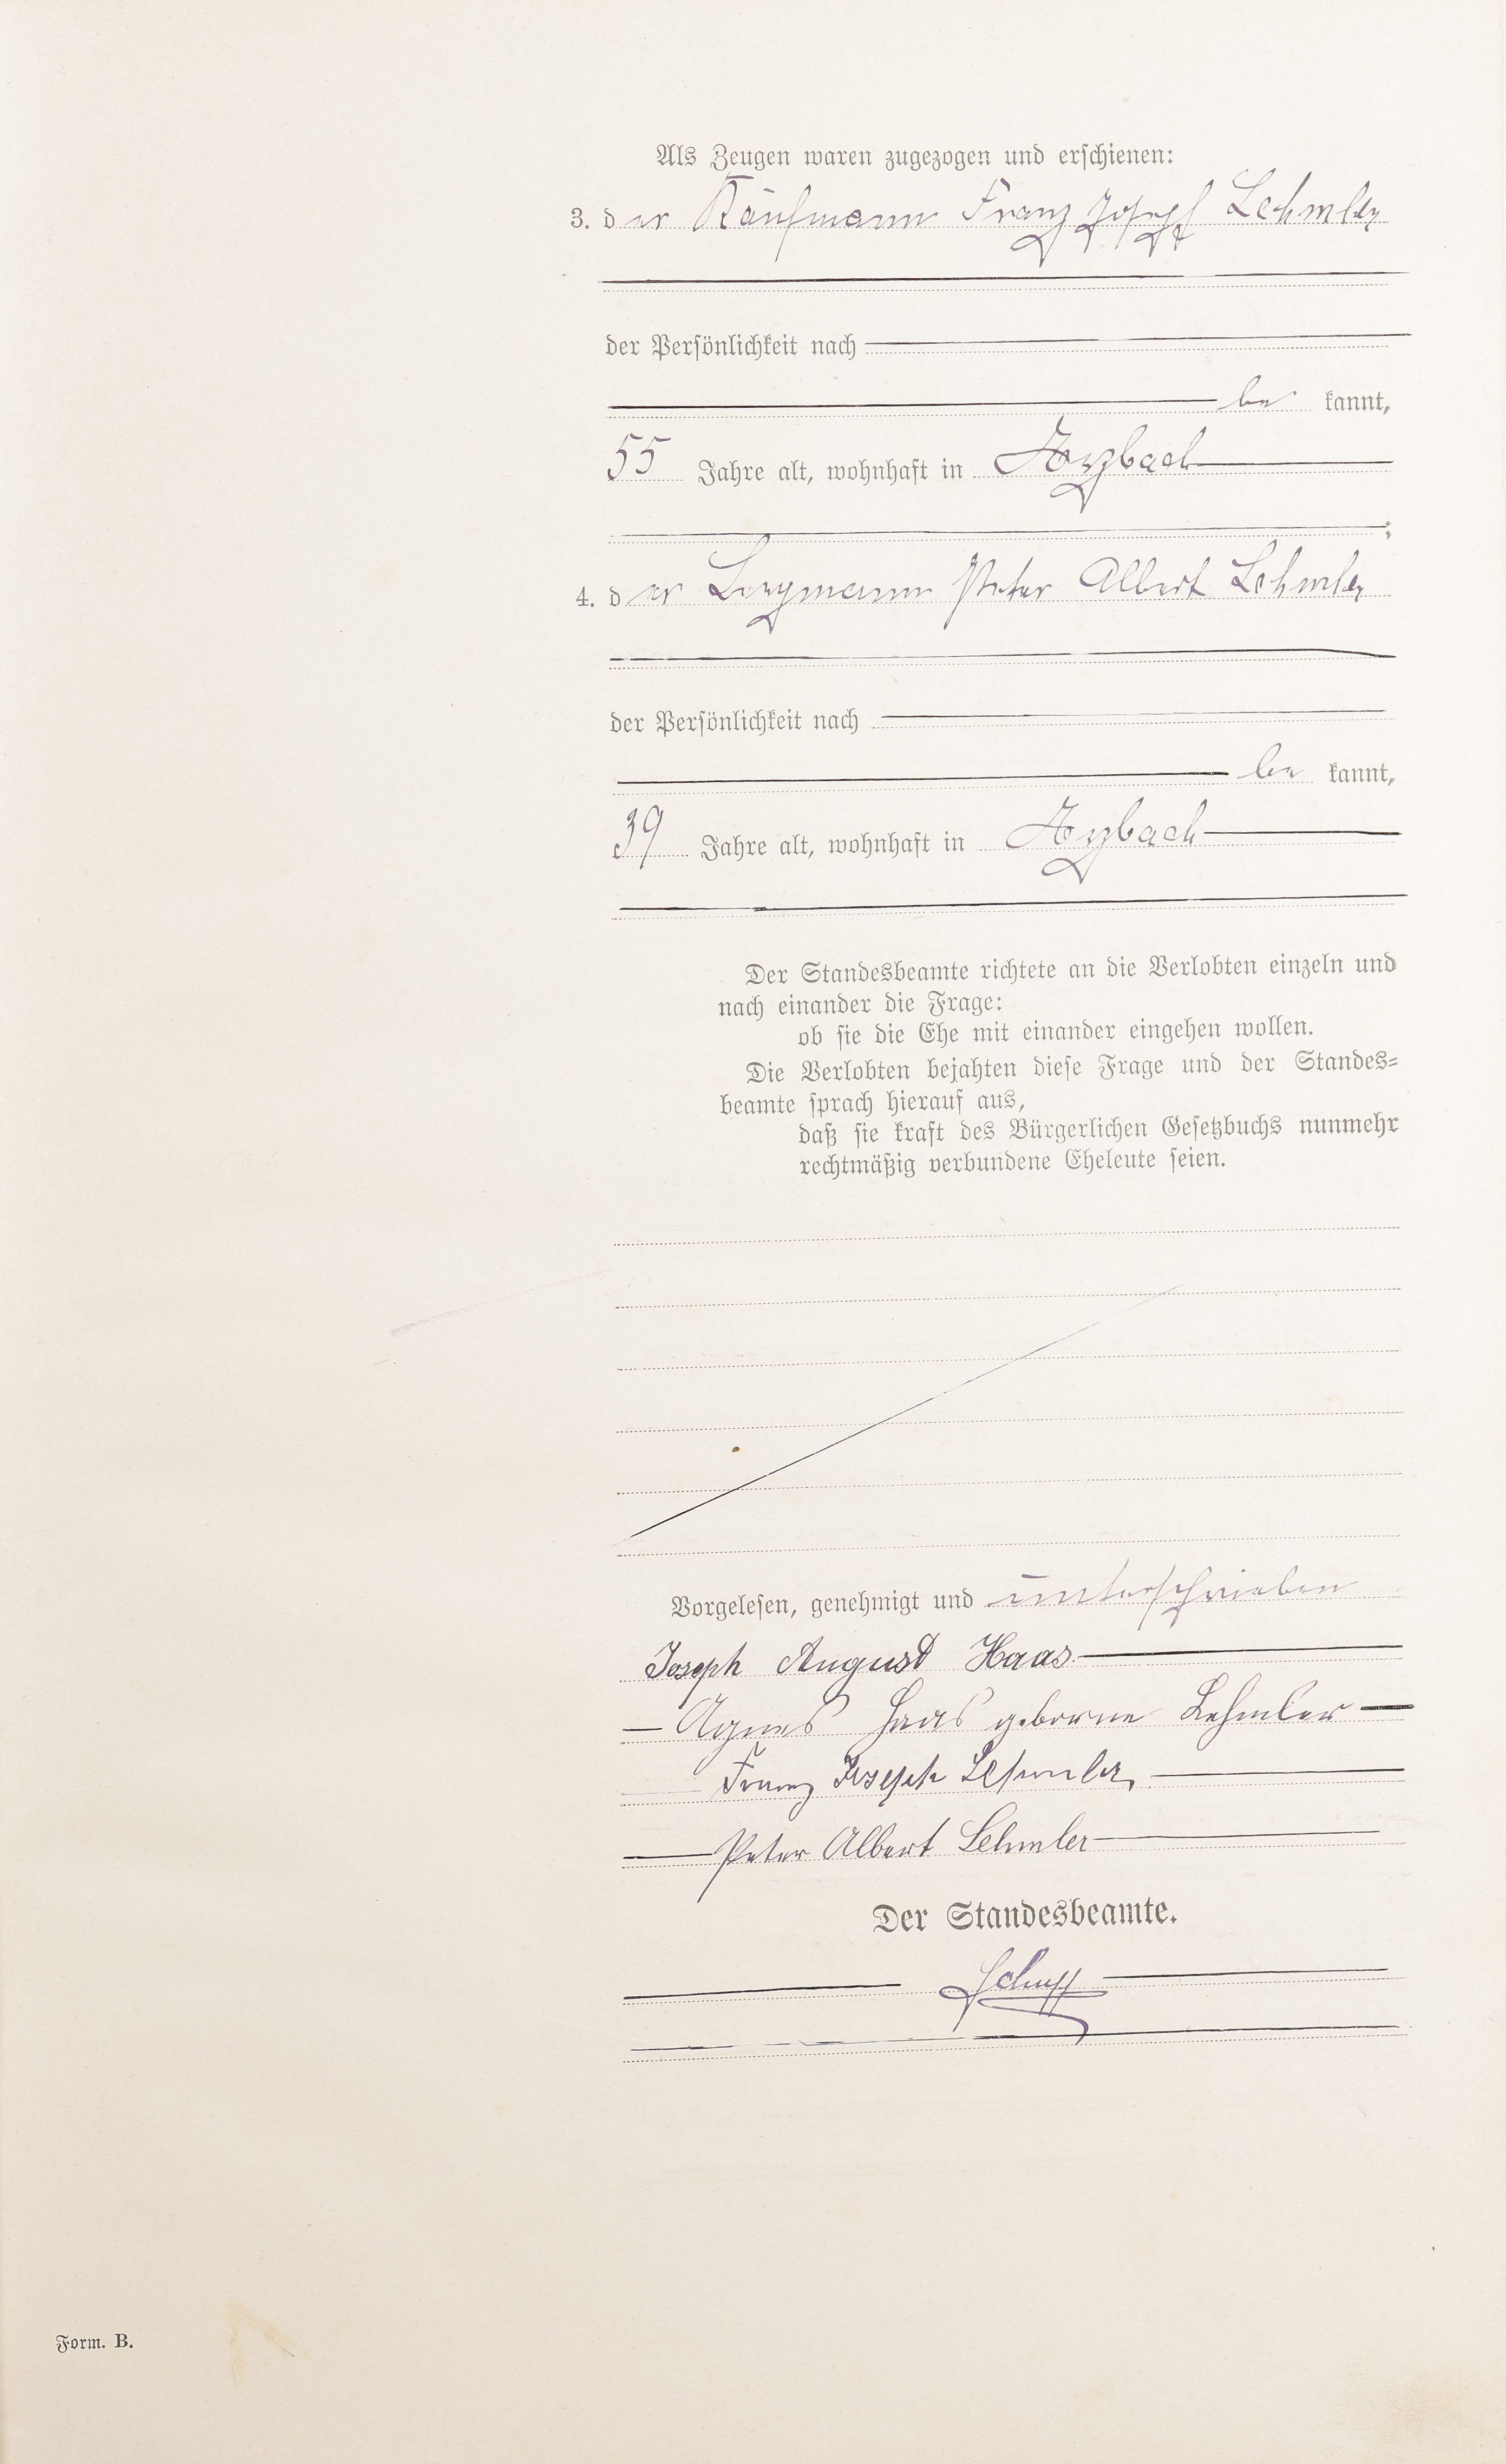 Als Zeugen waren zugezogen und erschienen:
3. der Kaufmann Franz Joseph Lehmler
der Persönlichkeit nach
be kannt,
55 Jahre alt, wohnhaft in Arzbach
;
4. der Bergmann Peter Albert Lehmler
der Persönlichkeit nach
be kannt,
39 Jahre alt, wohnhaft in Arzbach
Der Standesbeamte richtete an die Verlobten einzeln und
nach einander die Frage:
ob sie die Ehe mit einander eingehen wollen.
Die Verlobten bejahten diese Frage und der Standes-
beamte sprach hierauf aus,
daß sie kraft des Bürgerlichen Gesetzbuchs nunmehr
rechtmäßig verbundene Eheleute seien.
Vorgelesen, genehmigt und unterschrieben
Joseph August Haas
Agnes Haas geborne Lehmler
Franz Joseph Lehmler
Peter Albert Lehmler
Der Standesbeamte.
Form. B.